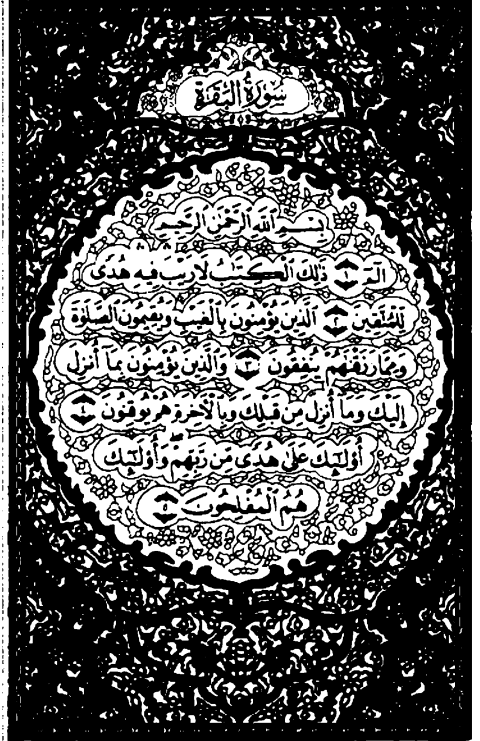 سُورَةُ الْبَقَرَةِ
بِسْمِ اللَّهِ الرَّحْمَٰنِ الرَّحِيمِ
الٓمٓ ١ ذَٰلِكَ الْكِتَابُ لَا رَيْبَ فِيهِ هُدًى
لِّلْمُتَّقِينَ ٢ الَّذِينَ يُؤْمِنُونَ بِالْغَيْبِ وَيُقِيمُونَ الصَّلَاةَ
وَمِمَّا رَزَقْنَاهُمْ يُنفِقُونَ ٣ وَالَّذِينَ يُؤْمِنُونَ بِمَا أُنزِلَ
إِلَيْكَ وَمَا أُنزِلَ مِن قَبْلِكَ وَبِالْآخِرَةِ هُمْ يُوقِنُونَ ٤
أُولَٰئِكَ عَلَىٰ هُدًى مِّن رَّبِّهِمْ وَأُولَٰئِكَ
هُمُ الْمُفْلِحُونَ ٥